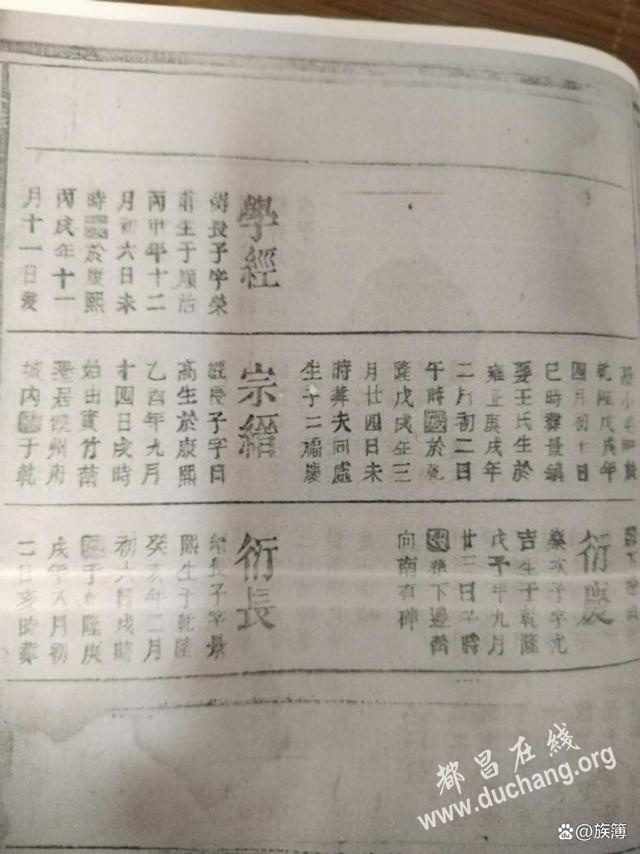 學經
長子字榮
甫生于順治
丙申年十二
月初六日未
時於康熙
丙戌年十一
月十一日妻
乾隆戊戌年
四月初十日
巳時葬景鎮
娶王氏生於
雍正庚戌年
二月初二日
午時於乾
隆戊戌年三
月廿四日未
時葬夫同處
生子二衍慶
宗縉
經長子字日
高生於康熙
乙酉年九月
十四日戌時
始由實竹
遷居饒州府
城内于乾
衍慶
次子字允
吉生于乾隆
戊子年九月
廿三日子時
葬下邊
向南有碑
衍長
縉長子字景
熙生于乾隆
癸亥年二月
初六日戌時
于乾隆庚
戌年八月初
二日亥時葬
都昌在線
www.duchang.org
@族簿